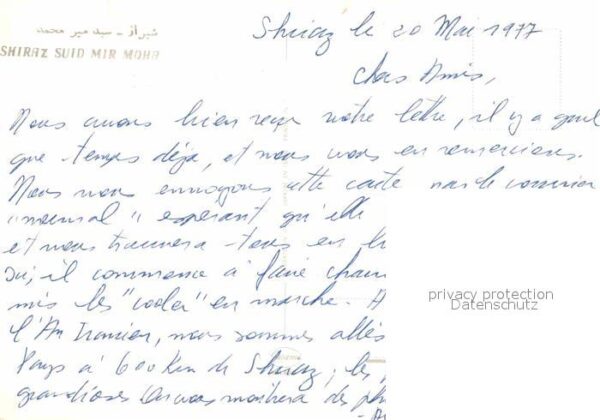 شیراز - سید میر محمد
SHIRAZ SUID MIR MOHA
Shiraz le 20 Mai 1977
Chers Amis,
Nous avons bien reçu votre lettre, il y a quel
que temps déjà, et nous vous en remercions.
Nous vous envoyons cette carte par le courrier
"normal" espérant qu'elle
et vous trouvera tous en
Ici, il commence à faire chau
mis les "cooler" en marche. A
l'An Iranien, nous sommes allés
à 600 Km de Shiraz; les
grandioses on vous montrera des
privacy protection
Datenschutz